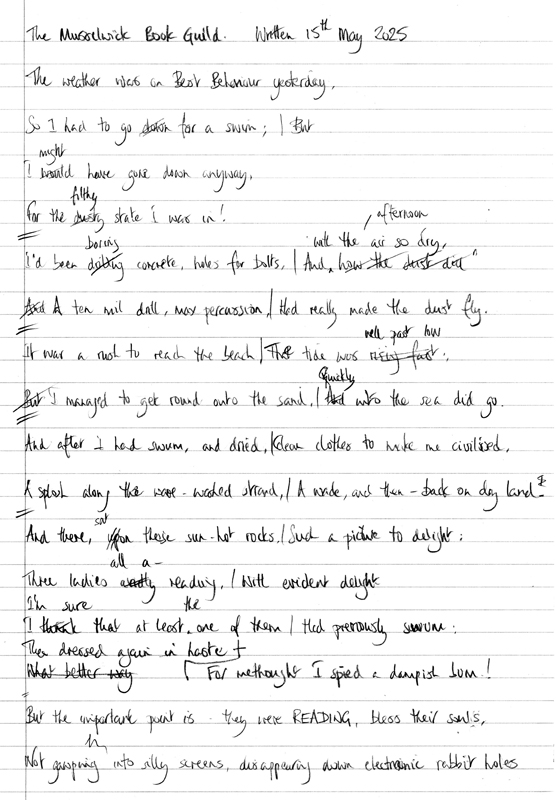 The Musselwick Book Guild. Written 15th May 2025
The weather was on Best Behaviour yesterday,
So I had to go down for a swim; / But
might
I would have gone down anyway,
filthy
For the dusty state I was in!
afternoon
boring with the air so dry,
I'd been drilling concrete, holes for bolts, / And, how the dust did
And A ten mil drill, max percussion, / Had really made the dust fly.
well past low
It was a rush to reach the beach / The tide was rising fast;
quickly
But I managed to get round onto the sand, / And into the sea did go.
And after I had swum, and dried, / Clean clothes to make me civilised,
A splash along the wave-washed strand, / A wade, and then - back on dry land!
sat
And there, upon those sun-hot rocks, / Such a picture to delight:
all a-
Three ladies reading, / With evident delight
I'm sure the
I think that at least one of them / Had previously swum:
Then dressed again in haste
What better way For methought I spied a dampish bum!
But the important point is - they were READING, bless their souls,
Not gawping into silly screens, disappearing down electronic rabbit holes